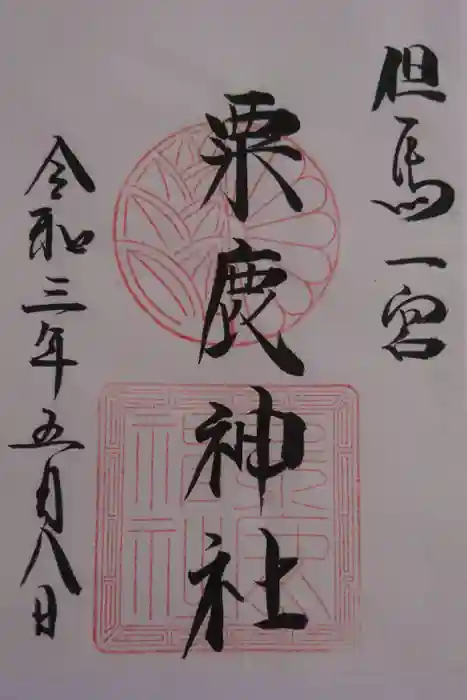 但馬一宮
粟鹿神社
令和三年五月八日